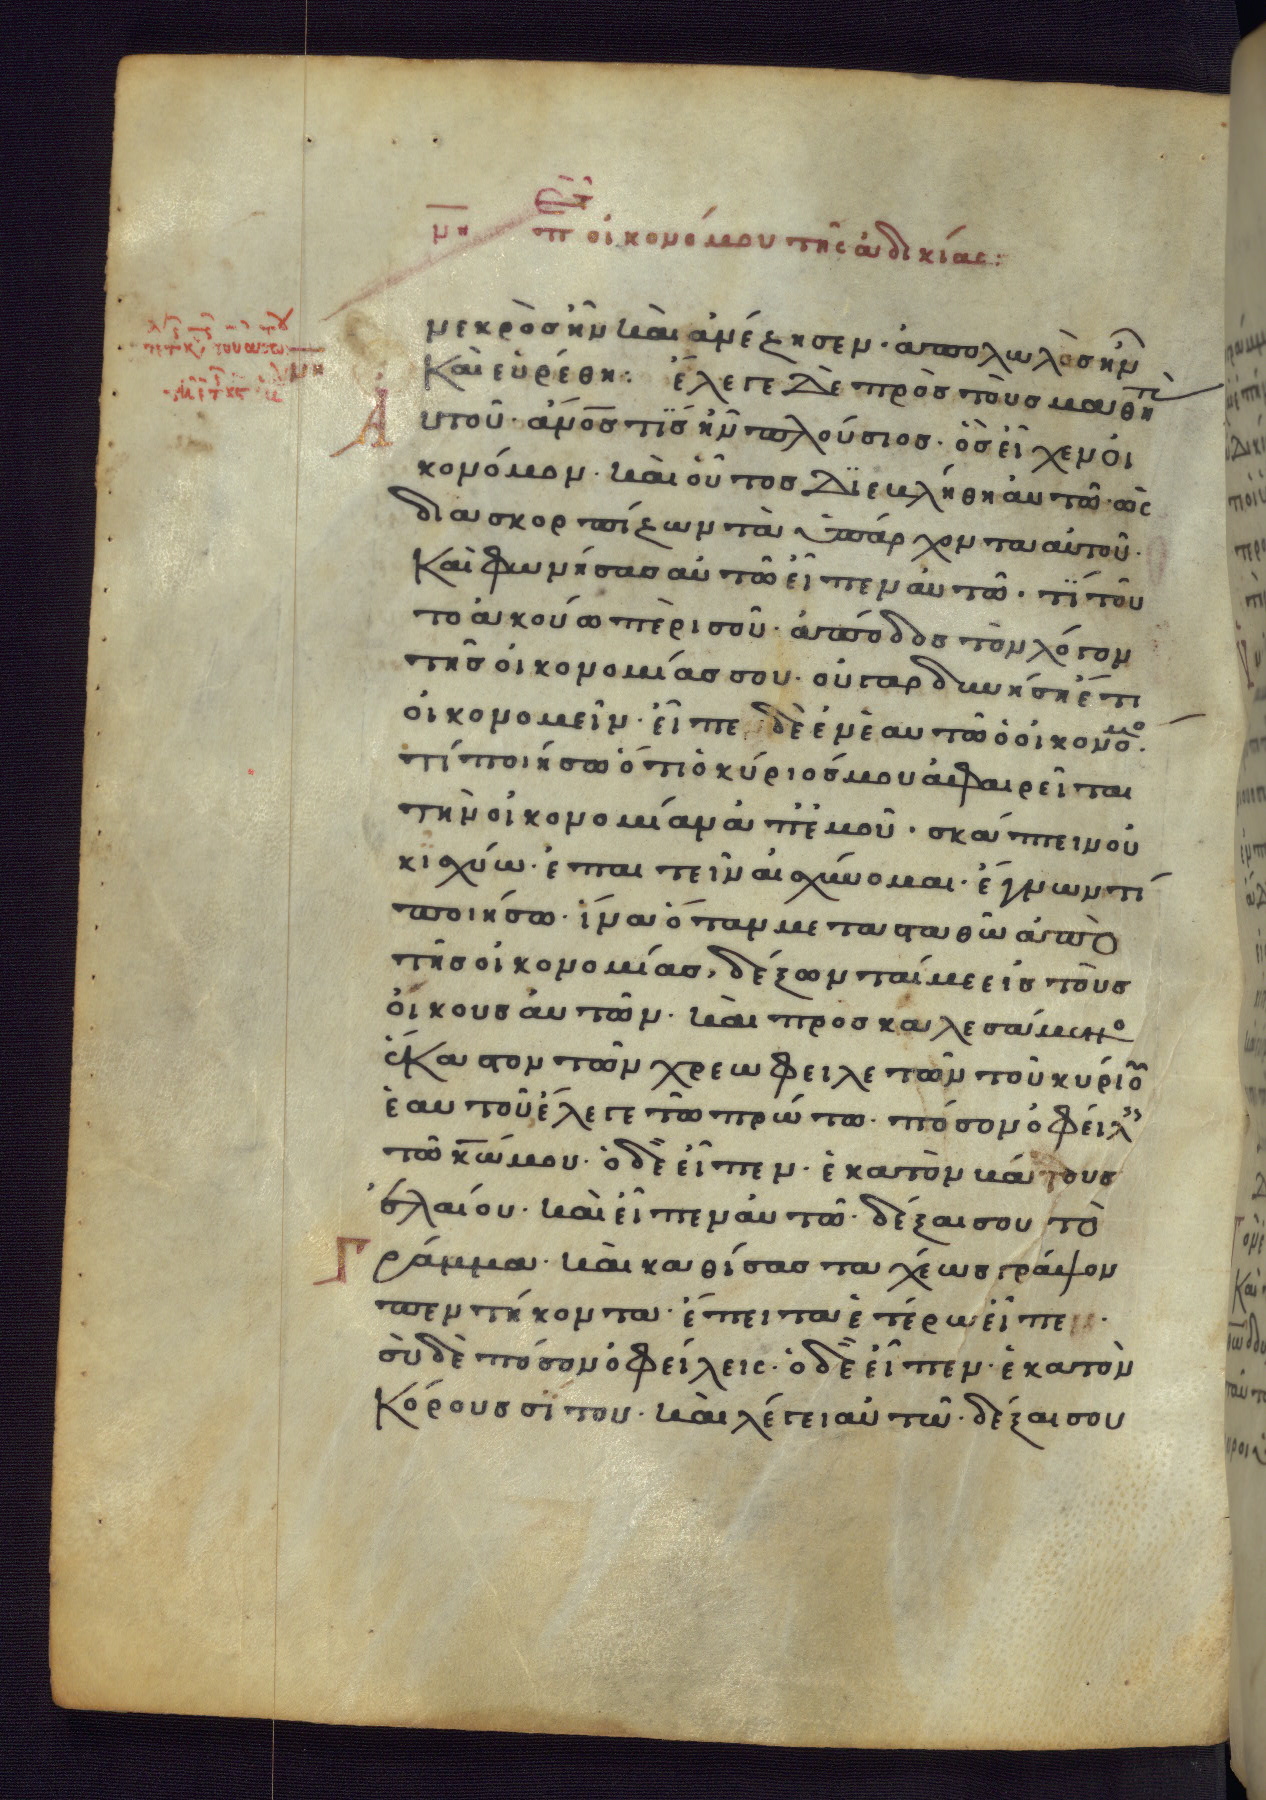 μη π οἰκονόμου της ἀδικίας:
νεκρὸσ ἦν καὶ ἀνέζησεν· ἀπολωλὸσ ἦν
Καὶ εὑρέθη: ἔλεγε δὲ πρὸσ τοὺσ μαθητὰσ
Αὐτοῦ· ἄνοσ τίσ ἦν πλούσιοσ· ὃσ εἶχεν οἰ
κονόμον· καὶ οὗτοσ διεβλήθη αὐτῶ· ὡς
διασκορπίζων τὰ ὑπάρχοντα αὐτοῦ·
Καὶ φωνήσασ αὐτῶ εἶπεν αὐτῶ· τί τοῦ
το ἀκούω περὶ σοῦ· ἀπόδοσ τὸν λόγον
τῆσ οἰκονομίασ σου· οὐ γαρ δυνήση ἔτι
οἰκονομεῖν· εἶπε δὲ ἐν ἑαυτῶ ὁ οἰκονόμο·
τί ποιήσω ὅτι ὁ κύριόσ μου ἀφαιρεῖται
τὴν οἰκονομίαν ἀπ ἐμοῦ· σκάπτειν οὐ
κ ισχύω· ἐπαιτεῖν αἰσχύνομαι· ἔγνων τί
ποιήσω· ἵνα ὅταν μεταταθῶ ἀπὸ
τῆσ οἰκονομίασ, δέξωνταί με εἰσ τοὺσ
οἴκουσ αὐτῶν· καὶ προσκαλεσάμενο
ἕΚαστον τῶν χρεωφειλετῶν τοῦ κυρίου
ἑαυτοῦ ἔλεγε τῶ πρώτω· πόσον ὀφείλεισ
τῶ κῶ μου· ὁ δὲ εἶπεν· ἑκατὸν κάδουσ
ἐλαίου· καὶ εἶπεν αὐτῶ· δέξαι σου τὸ
Γράμμα· καὶ καθίσασ ταχέωσ γράψον
πεντήκοντα· ἔπειτα ἑτέρω εἶπεν·
σὺ δὲ πόσον ὀφείλεις· ὁ δὲ εἶπεν· ἑκατὸν
Κόρουσ σίτου· καὶ λέγει αὐτῶ· δέξαι σου